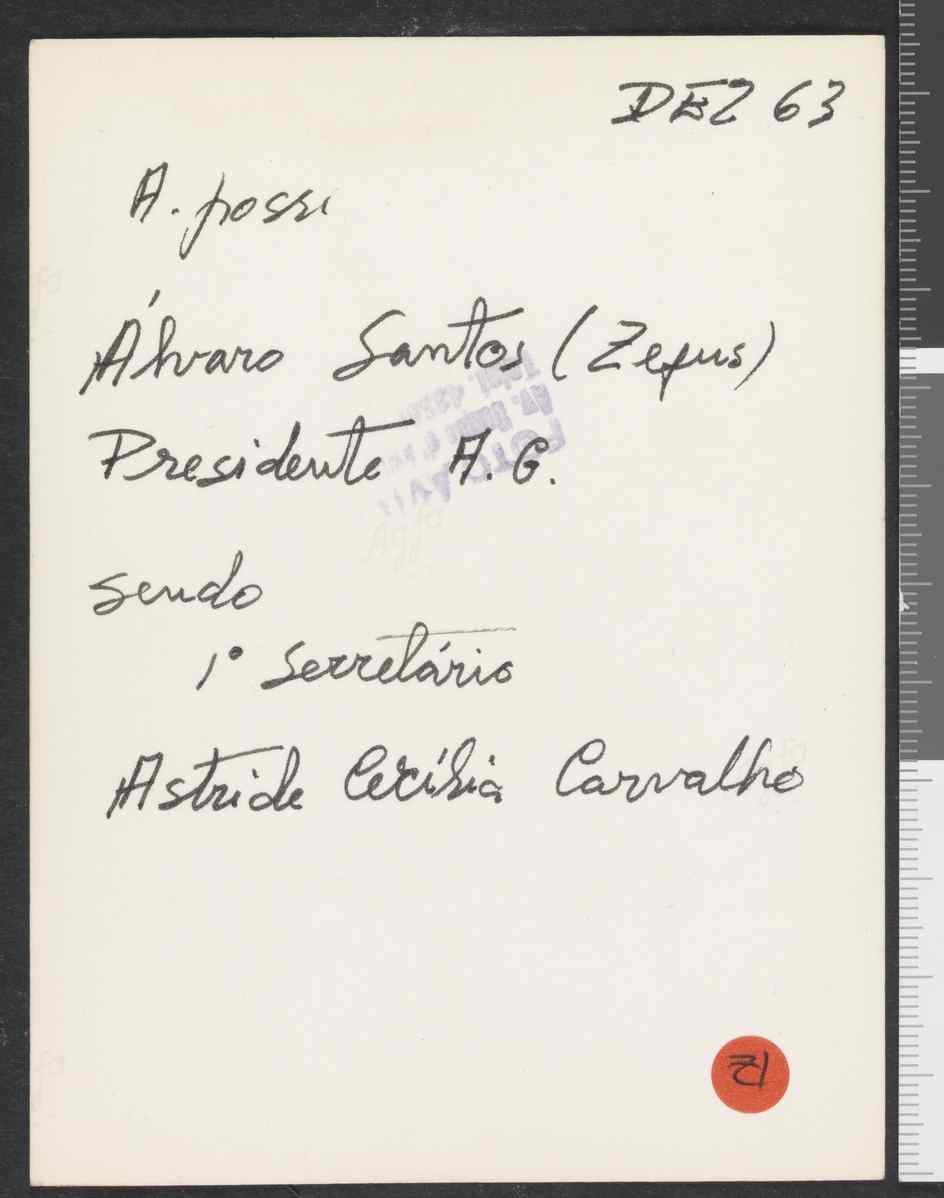 DEZ 63
A. posse
Álvaro Santos (Zefus)
Presidente A. G.
sendo
1º Secretário
Astride Cecília Carvalho
Agfa